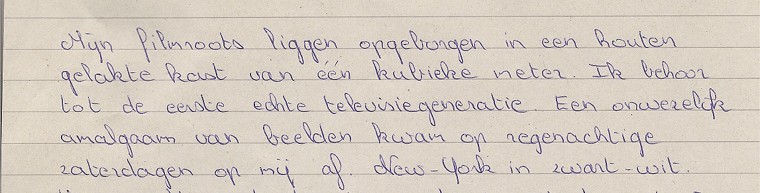 Mijn filmroots liggen opgeborgen in een houten
gelakte kast van één kubieke meter. Ik behoor
tot de eerste echte televisiegeneratie. Een onwezelijk
amalgaam van beelden kwam op regenachtige
zaterdagen op mij af. New-York in zwart-wit.